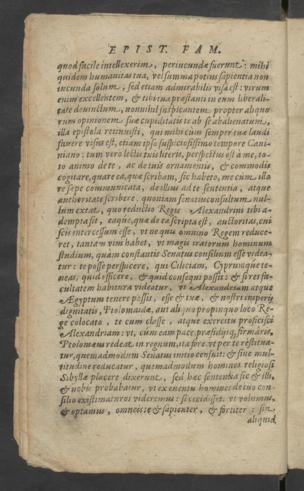 EPIST. FAM.
quod facile intellexerim, periucundæ fuerunt: mihi
quidem humanitas tua, vel summa potius sapientia non
iucunda solum, sed etiam admirabilis visa est: virum
enim excellentem, & tibi tua præstanti in eum liberali-
tate deuinctum, nonnihil suspicantem propter aliquo-
rum opinionem suæ cupiditatis te ab se abalienatum,
illa epistola retinuisti, qui mihi cum semper tuæ laudi
fauere visus est, etiam ipso suspiciosissimo tempore Cani-
niano: tum vero lectis tuis literis, perspectus est à me, to-
to animo de te, ac de tuis ornamentis, & commodis
cogitare, quare ea, quæ scribam, sic habeto, me cum illo
re sæpe communicata, de illius ad te sententia, atque
authoritate scribere. quoniam senatusconsultum nul-
lum extat, quo reductio Regis Alexandrini tibi a-
dempta sit, eaque, quæ de ea scripta est, auctoritas, cui
scis intercessum esse, vt ne quis omnino Regem reduce-
ret, tantam vim habet, vt magis iratorum hominum
studium, quam constantis Senatus consilium esse videa-
tur: te posse perspicere, qui Ciliciam, Cyprumque te-
neas, quid efficere, & quid consequi possis: & si res fa-
cultatem habitura videatur, vt Alexandream atque
Ægyptum tenere possis, esse & tuæ, & nostri imperij
dignitatis, Ptolomaide, aut aliquo propinquo loco Re-
ge collocato, te cum classe, atque exercitu proficisci
Alexandream: vt, cum eam pace, præsidijsque firmâris,
Ptolomæus redeat in regnum, ita fore vt per te restitua-
tur, quemadmodum Senatus initio censuit: & sine mul-
titudine reducatur, quemadmodum homines religiosi
Sibyllæ placere dixerunt, sed hæc sententia sic & illi,
& nobis probabatur, vt ex euentu homines de tuo con-
silio existimaturos videremus: si cecidisset. vt volumus,
& optamus, omnes te & sapienter, & fortiter: sin
aliquid